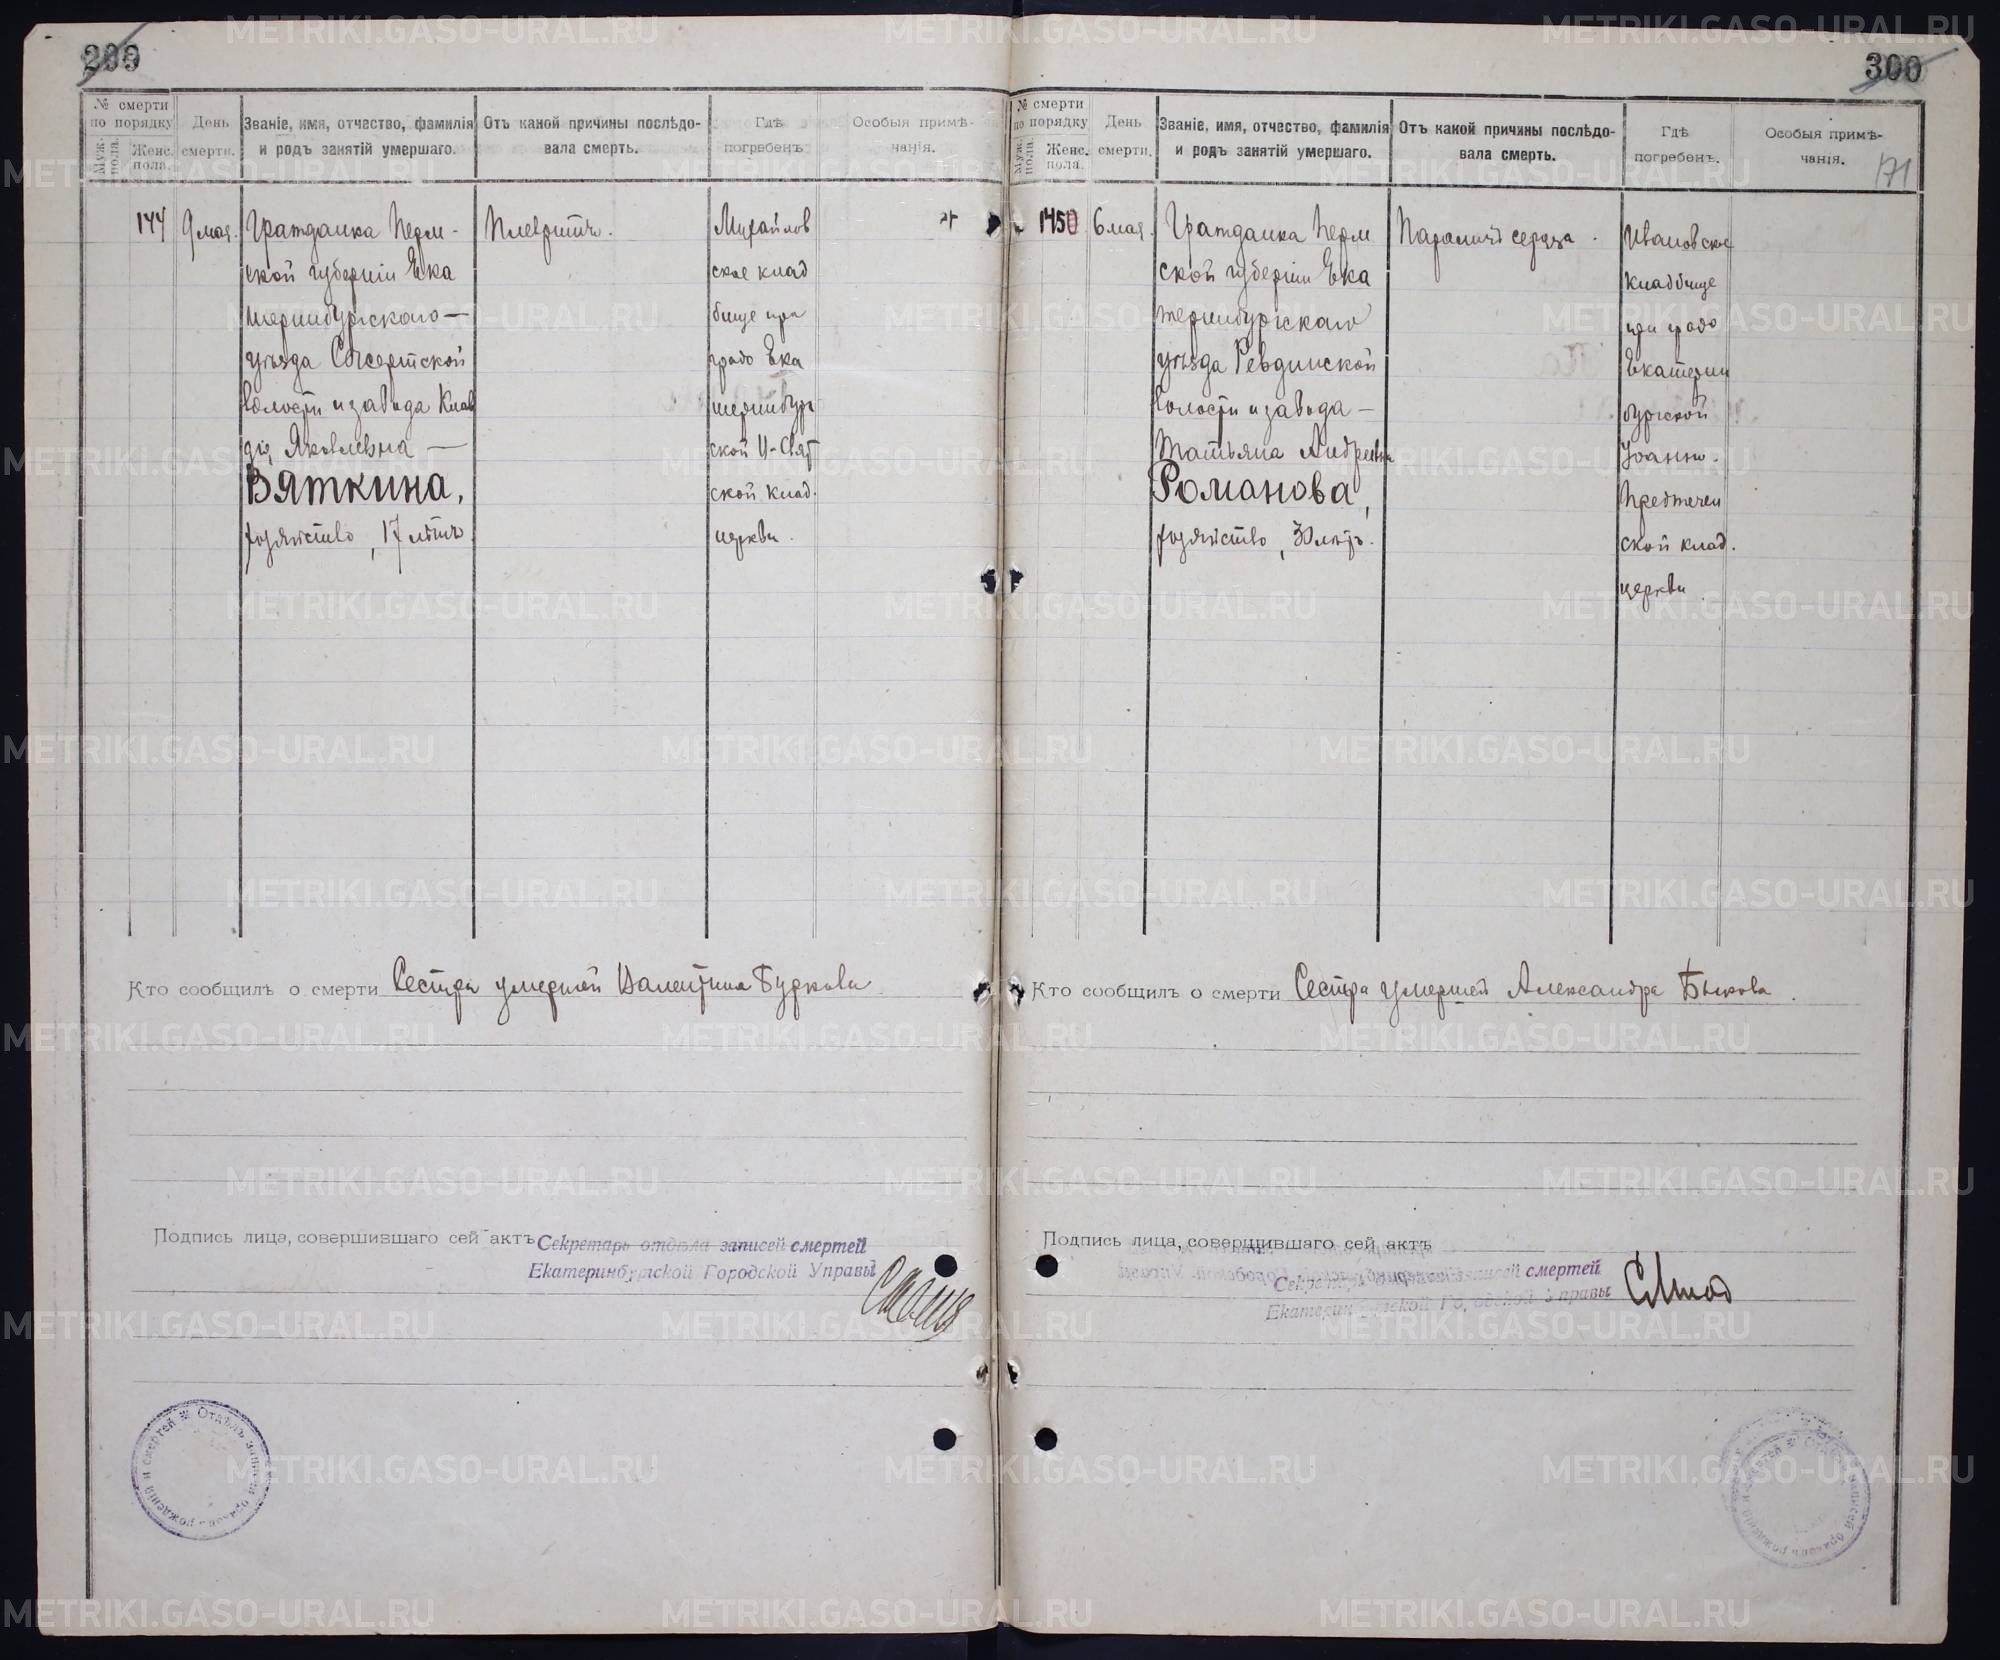 299
№ смерти
по порядку
Муж. пола.
Женс. пола.
День смерти.
Званіе, имя, отчество, фамилія
и родъ занятій умершаго.
Отъ какой причины послѣдо-
вала смерть.
Гдѣ
погребенъ.
Особыя примѣ-
чанія.
144
9 мая.
Гражданка Перм-
ской губерніи Ека
теринбургскаго —
уѣзда Сысертской
волости и завода Клав
дія Яковлевна —
Вяткина,
хозяйство, 17 лѣтъ.
Плевритъ.
Михайлов
ское клад
бище при
градо Ека
теринбург
ской
ской клад.
церкви.
Кто сообщилъ о смерти Сестра умершей Валентина Буркова
Подпись лица, совершившаго сей актъ Секретарь отдѣла записей смертей
Екатеринбургской Городской Управы
Отдѣлъ записей браковъ рожденій и смертей
300
171
№ смерти
по порядку
Муж. пола.
Женс. пола.
День
смерти.
Званіе, имя, отчество, фамилія
и родъ занятій умершаго.
Отъ какой причины послѣдо-
вала смерть.
Гдѣ
погребенъ.
Особыя примѣ-
чанія.
1450
6 мая.
Гражданка Перм
ской губерніи Ека
теринбургскаго
уѣзда Ревдинской
волости и завода —
Татьяна Андреевна
Романова,
хозяйство, 30 лѣтъ.
Параличъ сердца.
Ивановское
кладбище
при градо
Екатерин
бургской
Іоанно-
Предтечен
ской клад.
церкви.
Кто сообщилъ о смерти Сестра умершей Александра Быкова.
Подпись лица, совершившаго сей актъ
Секретарь отдѣла записей смертей
Екатеринбургской Городской Управы
Отдѣлъ записей браковъ рожденій и смертей
METRIKI.GASO-URAL.RU